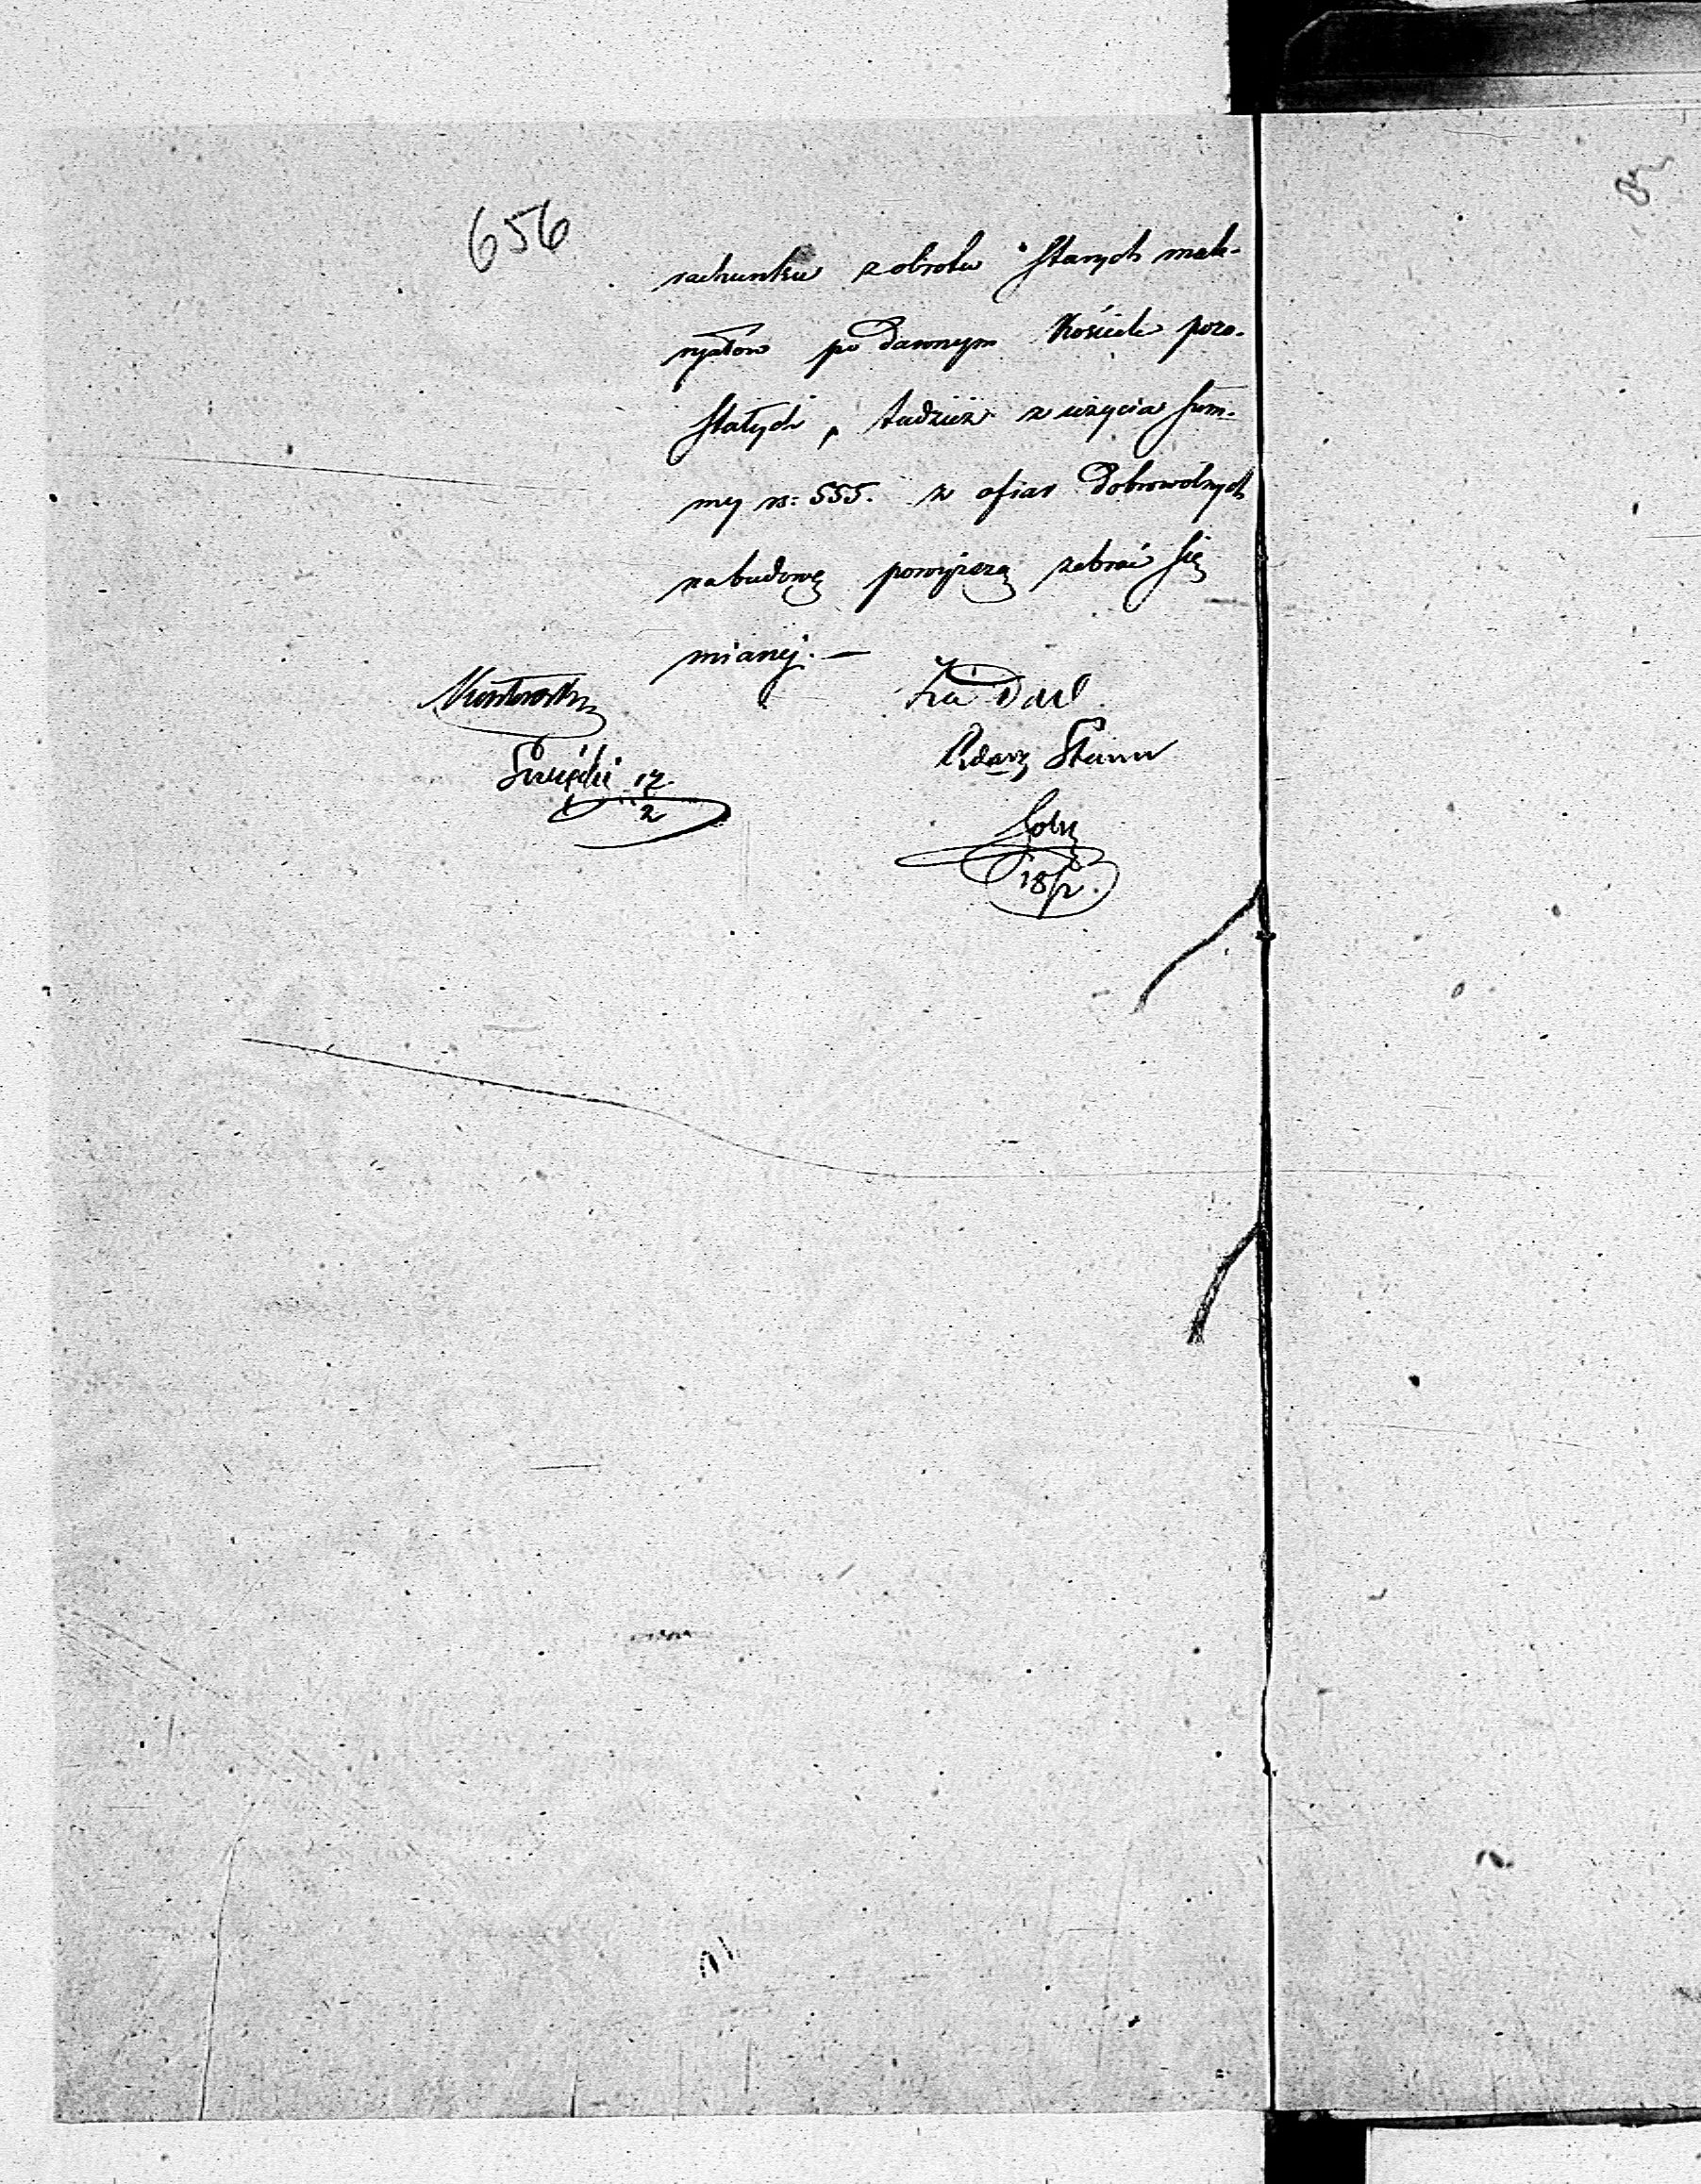 656
rachunku z obrotu starych mate-
ryałów po dawnym Kościele pozo-
stałych, tudzież z użycia sum-
my rs: 555. z ofiar dobrowolnych
na budowę powyższą zebrać się
mianej. —
Radca Stanu
17/2
18/2.